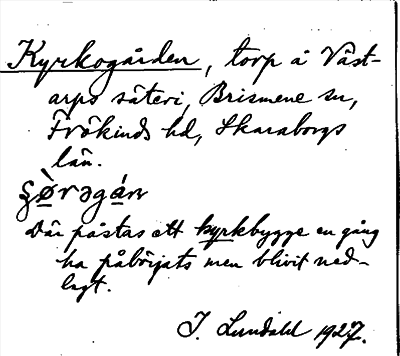 Kyrkogården, torp å Väst-
arps säteri, Brismene sn,
Frökinds hd, Skaraborgs
län.
Där påstas ett kyrkbygge en gång
ha påbörjats men blivit ned-
lagt.
J. Lundahl 1927.